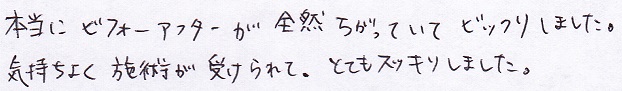 本当に ビフォーアフターが 全然 ちがっていて ビックリしました。
気持ちよく 施術が 受けられて。とてもスッキリしました。